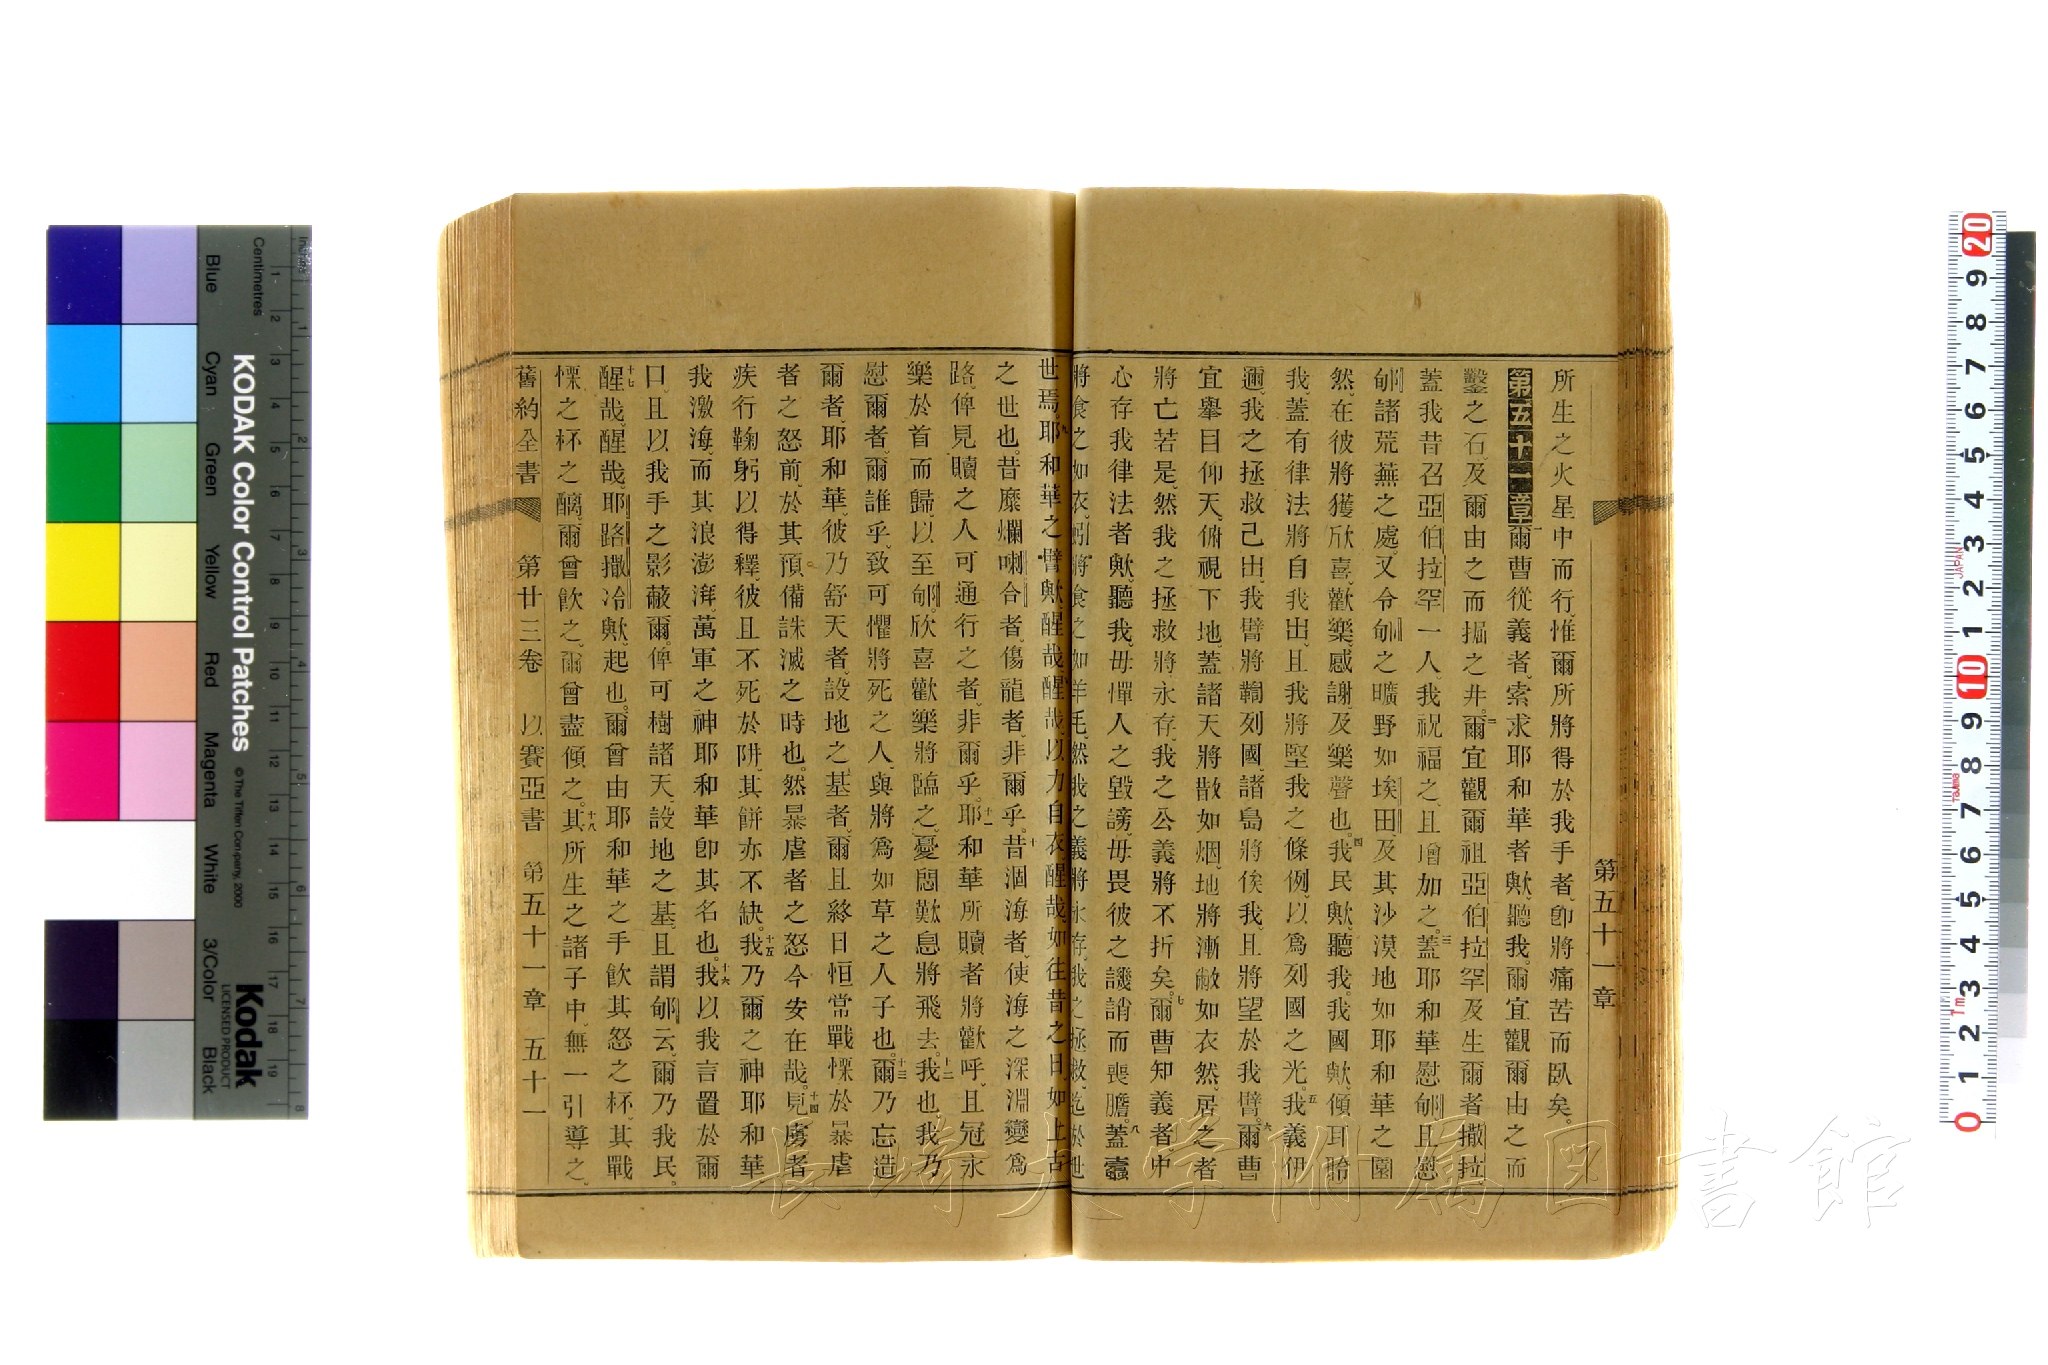 第五十一章
所生之火星中而行、惟爾所將得於我手者、卽將痛苦而臥矣。
第五十一章 一爾曹從義者、索求耶和華者歟、聽我。爾宜觀爾由之而
鑿之石、及爾由之而掘之井。二爾宜觀爾祖亞伯拉罕、及生爾者撒拉、
蓋我昔召亞伯拉罕一人、我祝福之、且增加之。三蓋耶和華慰郇、且慰
郇諸荒蕪之處、又令郇之曠野如埃田、及其沙漠地如耶和華之園
然、在彼將獲欣喜、歡樂、感謝、及樂聲也。四我民歟、聽我、我國歟、傾耳聆
我、蓋有律法將自我出、且我將堅我之條例、以爲列國之光。五我義伊
邇、我之拯救已出、我臂將鞫列國、諸島將俟我、且將望於我臂。六爾曹
宜舉目仰天、俯視下地、蓋諸天將散如烟、地將漸敝如衣然、居之者
將亡若是、然我之拯救將永存、我之公義將不折矣。七爾曹知義者、中
心存我律法者歟、聽我、毋憚人之毀謗、毋畏彼之譏誚而喪膽。八蓋蠹
將食之如衣、蚓將食之如羊毛、然我之義將永存、我之拯救迄於世
世焉。九耶和華之臂歟、醒哉、醒哉、以力自衣、醒哉、如往昔之日、如上古
之世也。昔糜爛喇合者、傷龍者、非爾乎。十昔涸海者、使海之深淵變爲
路、俾見贖之人可通行之者、非爾乎。十一耶和華所贖者將歡呼、且冠永
樂於首而歸、以至郇、欣喜歡樂將臨之、憂悶歎息將飛去。十二我也、我乃
慰爾者、爾誰乎、致可懼將死之人、與將爲如草之人子也。十三爾乃忘造
爾者、耶和華、彼乃舒天者、設地之基者、爾且終日恒常戰慄於暴虐
者之怒前、於其預備誅滅之時也。然暴虐者之怒今安在哉。十四見虜者
疾行鞠躬以得釋、彼且不死於阱、其餅亦不缺。十五我乃爾之神耶和華
我激海、而其浪澎湃、萬軍之神耶和華卽其名也。十六我以我言置於爾
口、且以我手之影蔽爾。俾可樹諸天、設地之基、且謂郇云、爾乃我民。
十七醒哉、醒哉、耶路撒冷歟、起也。爾曾由耶和華之手飲其怒之杯、其戰
慄之杯之醨、爾曾飲之、爾曾盡傾之。十八其所生之諸子中、無一引導之、
舊約全書 第廿三卷 以賽亞書 第五十一章 五十一
長崎大学附属図書館
KODAK Color Control Patches
© The Tiffen Company, 2000
Kodak
LICENSED PRODUCT
Inches
Centimetres
Blue Cyan Green Yellow Red Magenta White 3/Color Black
1 2 3 4 5 6 7 8 9 10 11 12 13 14 15 16 17 18 19
1 2 3 4 5 6 7 8
20 9 8 7 6 5 4 3 2 1 10 9 8 7 6 5 4 3 2 1 0
JAPAN
1m